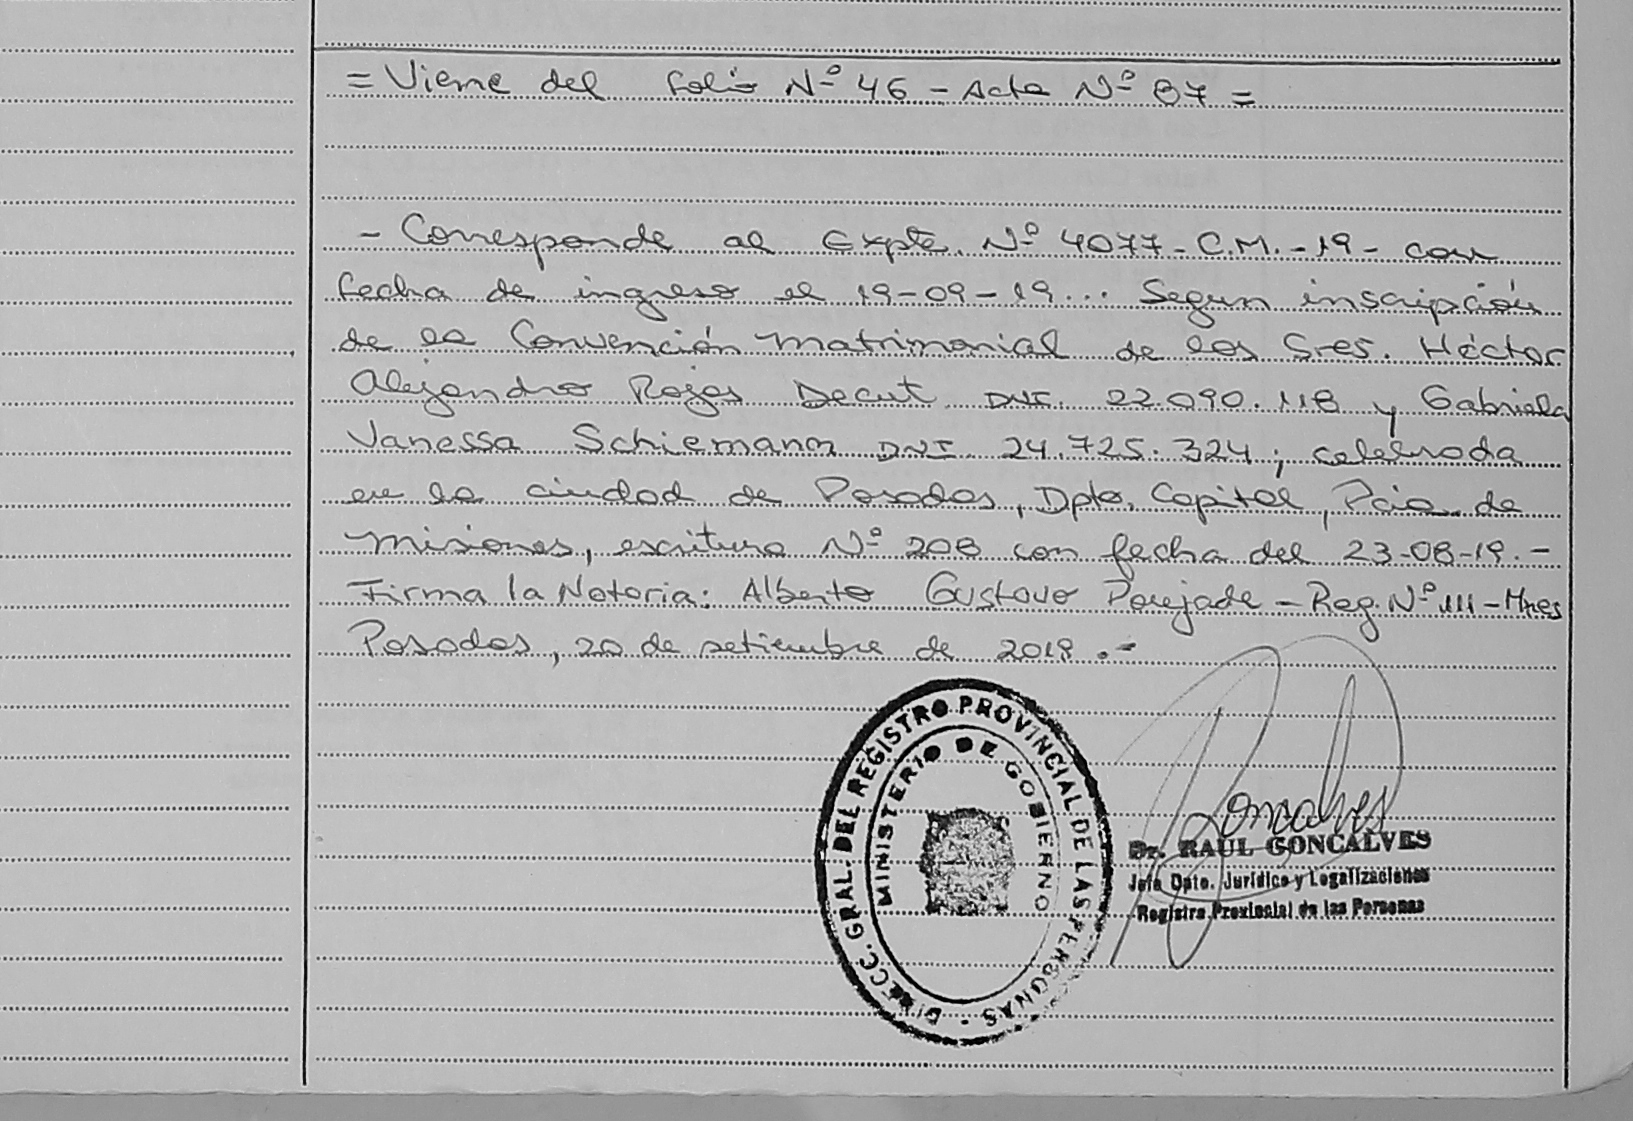 = Viene del folio Nº 46 - Acta Nº 87 =
- Corresponde al Expte. Nº 4077 - C.M. - 19 - con
fecha de ingreso el 19-09-19... Segun inscripción
de la Convención matrimonial de los Sres. Héctor
Alejandro Rojas Decut DNI. 22.090.118 y Gabriela
Vanessa Schiemann DNI 24.725.324; celebrada
en la ciudad de Posadas, Dpto. Capital, Pcia. de
Misiones, escritura Nº 208 con fecha del 23-08-19.-
Firma la Notoria: Alberto Gustavo Poujade - Reg. Nº 111 - Mnes
Posadas, 20 de setiembre de 2019.-
DIRECC. GRAL. DEL REGISTRO PROVINCIAL DE LAS PERSONAS -
MINISTERIO DE GOBIERNO
Goncalves
Dr. RAUL GONCALVES
Jefe Dpto. Jurídico y Legalizaciones
Registro Provincial de las Personas